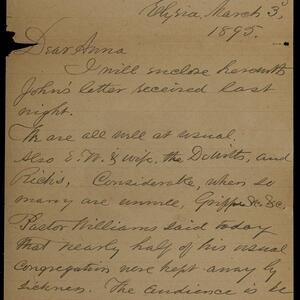 Elyria, March 3,
1895.
Dear Anna
I will enclose herewith
John's letter received last
night.
We are all well as usual.
Also E. W. & wife, the DeWitts, and
Rich's, Considerable, when so
many are unwell, Grippe &c. &c.
Pastor Williams said today
that nearly half of his usual
congregation were kept away by
sickness. The audience is be